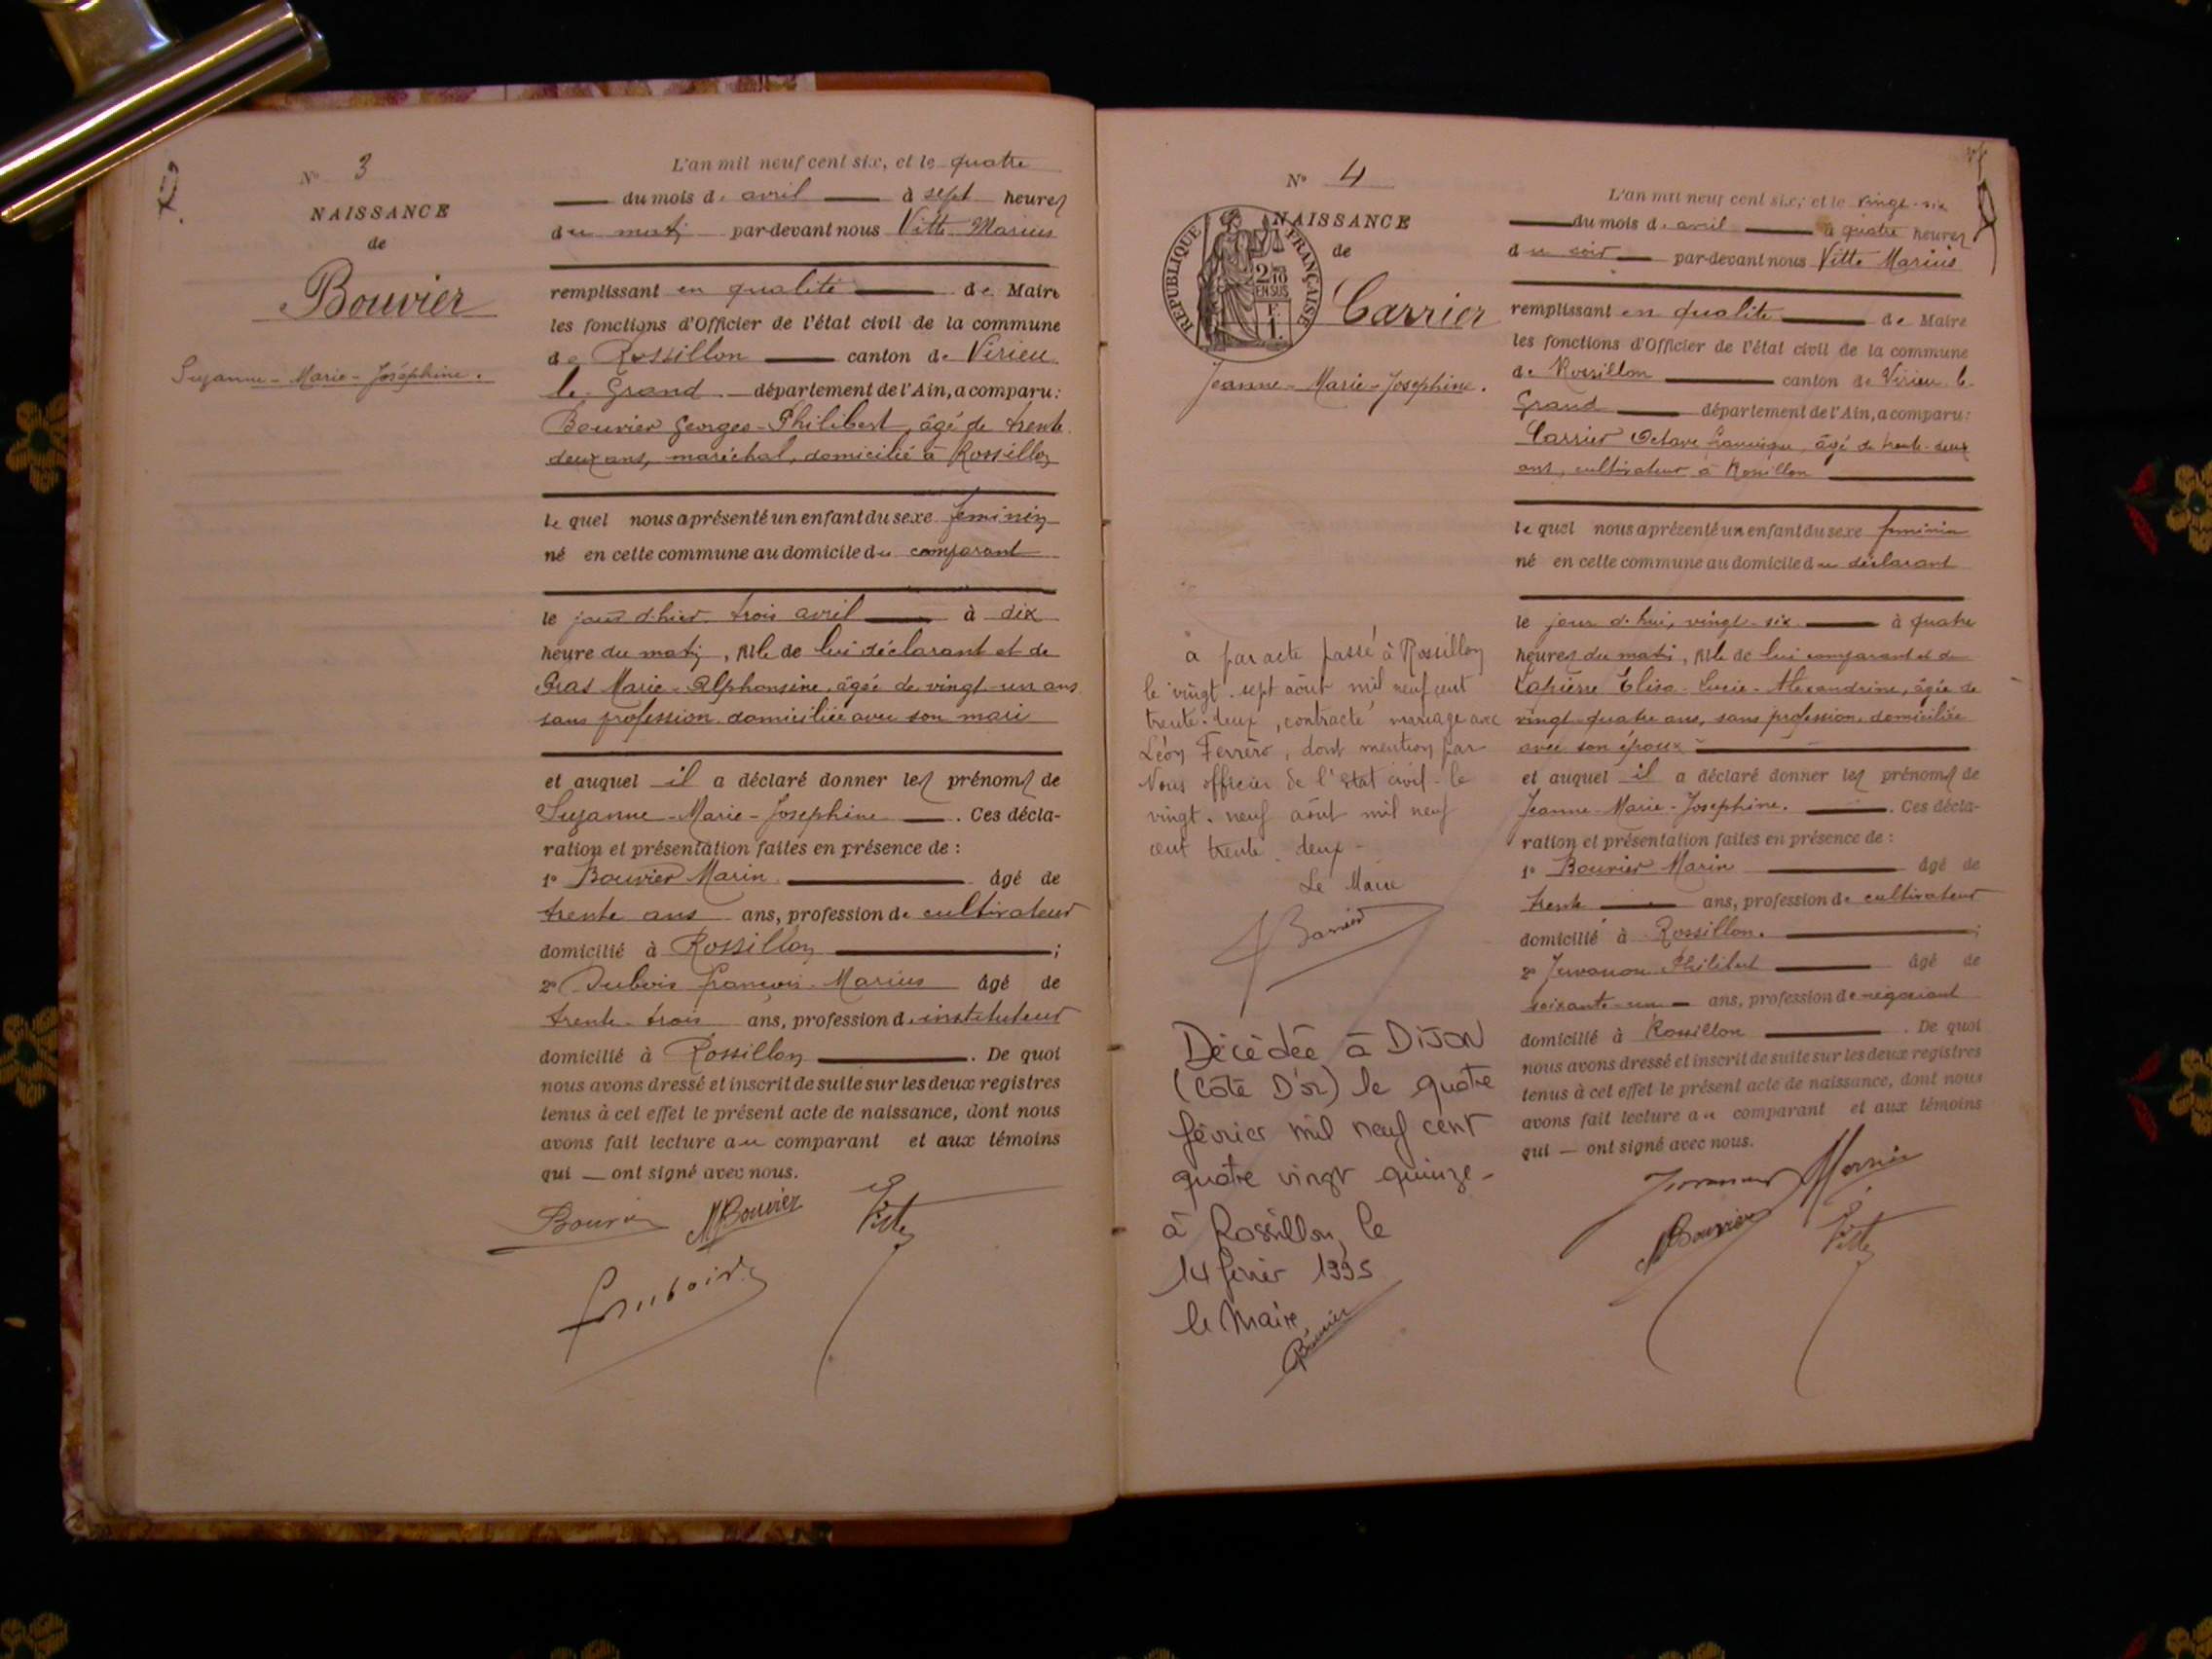 N° 3
NAISSANCE
de
Bouvier
Suzanne-Marie-Joséphine.
L'an mil neuf cent six, et le quatre
du mois d. avril à sept heures
du matin par-devant nous Vitte Marius
remplissant en qualité de Maire
les fonctions d'Officier de l'état civil de la commune
de Rossillon canton de Virieu
le Grand département de l'Ain, a comparu :
Bouvier Georges-Philibert, âgé de trente
deux ans, maréchal, domicilié à Rossillon
le quel nous a présenté un enfant du sexe féminin
né en cette commune au domicile du comparant
le jour d'hier trois avril à dix
heure du matin, fille de lui déclarant et de
Gras Marie-Alphonsine, âgée de vingt-un ans
sans profession domiciliée avec son mari
et auquel il a déclaré donner les prénoms de
Suzanne-Marie-Josephine. Ces décla-
ration et présentation faites en présence de :
1° Bouvier Marin âgé de
trente ans ans, profession de cultivateur
domicilié à Rossillon ;
2° Dubois François-Marius âgé de
trente-trois ans, profession d. instituteur
domicilié à Rossillon. De quoi
nous avons dressé et inscrit de suite sur les deux registres
tenus à cet effet le présent acte de naissance, dont nous
avons fait lecture au comparant et aux témoins
qui — ont signé avec nous.
Bouvier MBouvier Vitte
Dubois
N° 4
NAISSANCE
de
REPUBLIQUE FRANÇAISE
2/10
EN SUS
F.
1.
Carrier
Jeanne-Marie-Josephine.
a par acte passé à Rossillon
le vingt-sept août mil neuf cent
trente-deux, contracté mariage avec
Léon Ferrero, dont mention par
Nous officier de l'Etat civil le
vingt-neuf août mil neuf
cent trente-deux-
Le Maire
Décédée à DIJON
(Côte D'or) le quatre
février mil neuf cent
quatre vingt quinze-
à Rossillon, le
14 février 1995
le Maire,
L'an mil neuf cent six, et le vingt-six
du mois d. avril à quatre heures
du soir par-devant nous Vitte Marius
remplissant en qualité de Maire
les fonctions d'Officier de l'état civil de la commune
de Rossillon canton de Virieu le
Grand département de l'Ain, a comparu :
Carrier Octave François, âgé de trente-deux
ans, cultivateur à Rossillon
le quel nous a présenté un enfant du sexe féminin
né en cette commune au domicile du déclarant
le jour d'hui, vingt-six à quatre
heures du matin, fille de lui comparant et de
Elisa-Lucie-Alexandrine, âgée de
vingt-quatre ans, sans profession, domiciliée
avec son époux
et auquel il a déclaré donner les prénoms de
Jeanne-Marie-Josephine. Ces décla-
ration et présentation faites en présence de :
1° Bouvier Marin âgé de
trente ans, profession de cultivateur
domicilié à Rossillon. ;
2° Philibert âgé de
soixante-un ans, profession de négociant
domicilié à Rossillon. De quoi
nous avons dressé et inscrit de suite sur les deux registres
tenus à cet effet le présent acte de naissance, dont nous
avons fait lecture au comparant et aux témoins
qui — ont signé avec nous.
MBouvier Vitte